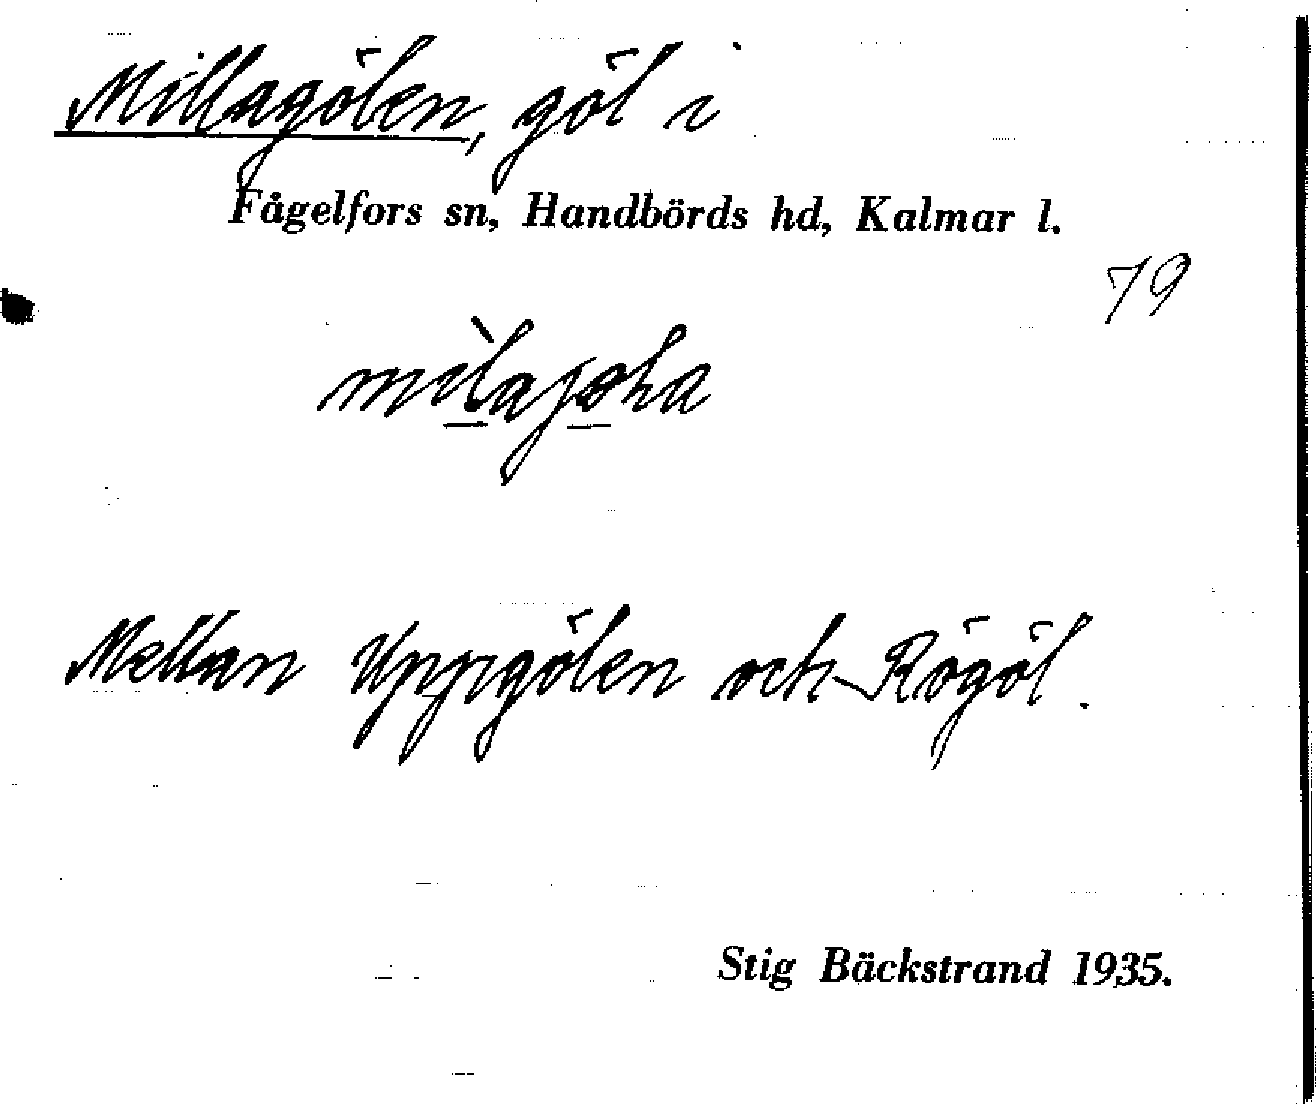 Millagölen, göl i
Fågelfors sn, Handbörds hd, Kalmar l.
79
Mellan Uppgölen och Rögöl.
Stig Bäckstrand 1935.